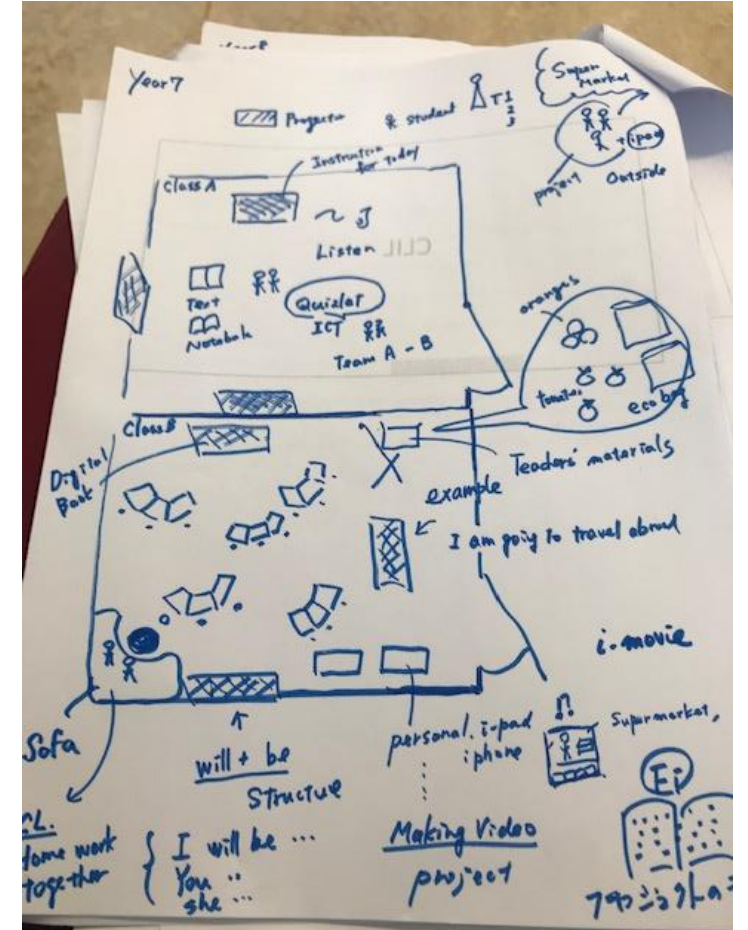 Year 7
Projector
student
T 1
2
3
Super
Market
+ ipad
project
Outside
Instruction
for today
Class A
Listen
CLIL
Text
Notebook
Quizlet
ICT
Team A - B
oranges
tomatoes
eco bag
Class B
Digital
Book
Teachers' materials
example
I am going to travel abroad
i-movie
Sofa
will + be
Structure
personal. i-pad
iphone
Supermarket,
Home work
together
I will be ...
You "
she ...
Making Video
project
Ei